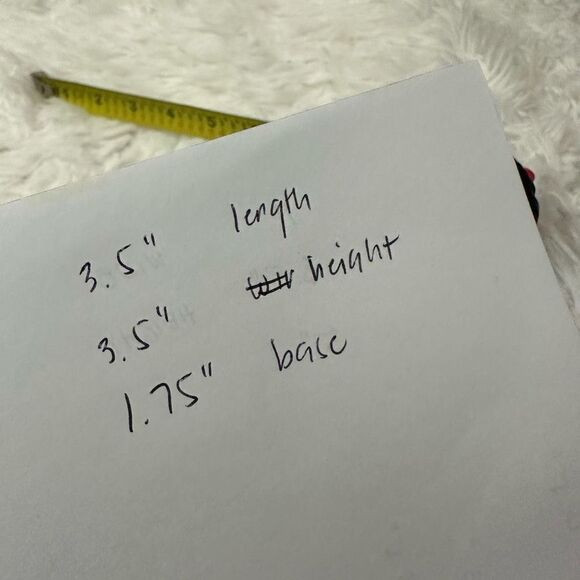 1 2 3 4 5
3.5" length
3.5" height
1.75" base